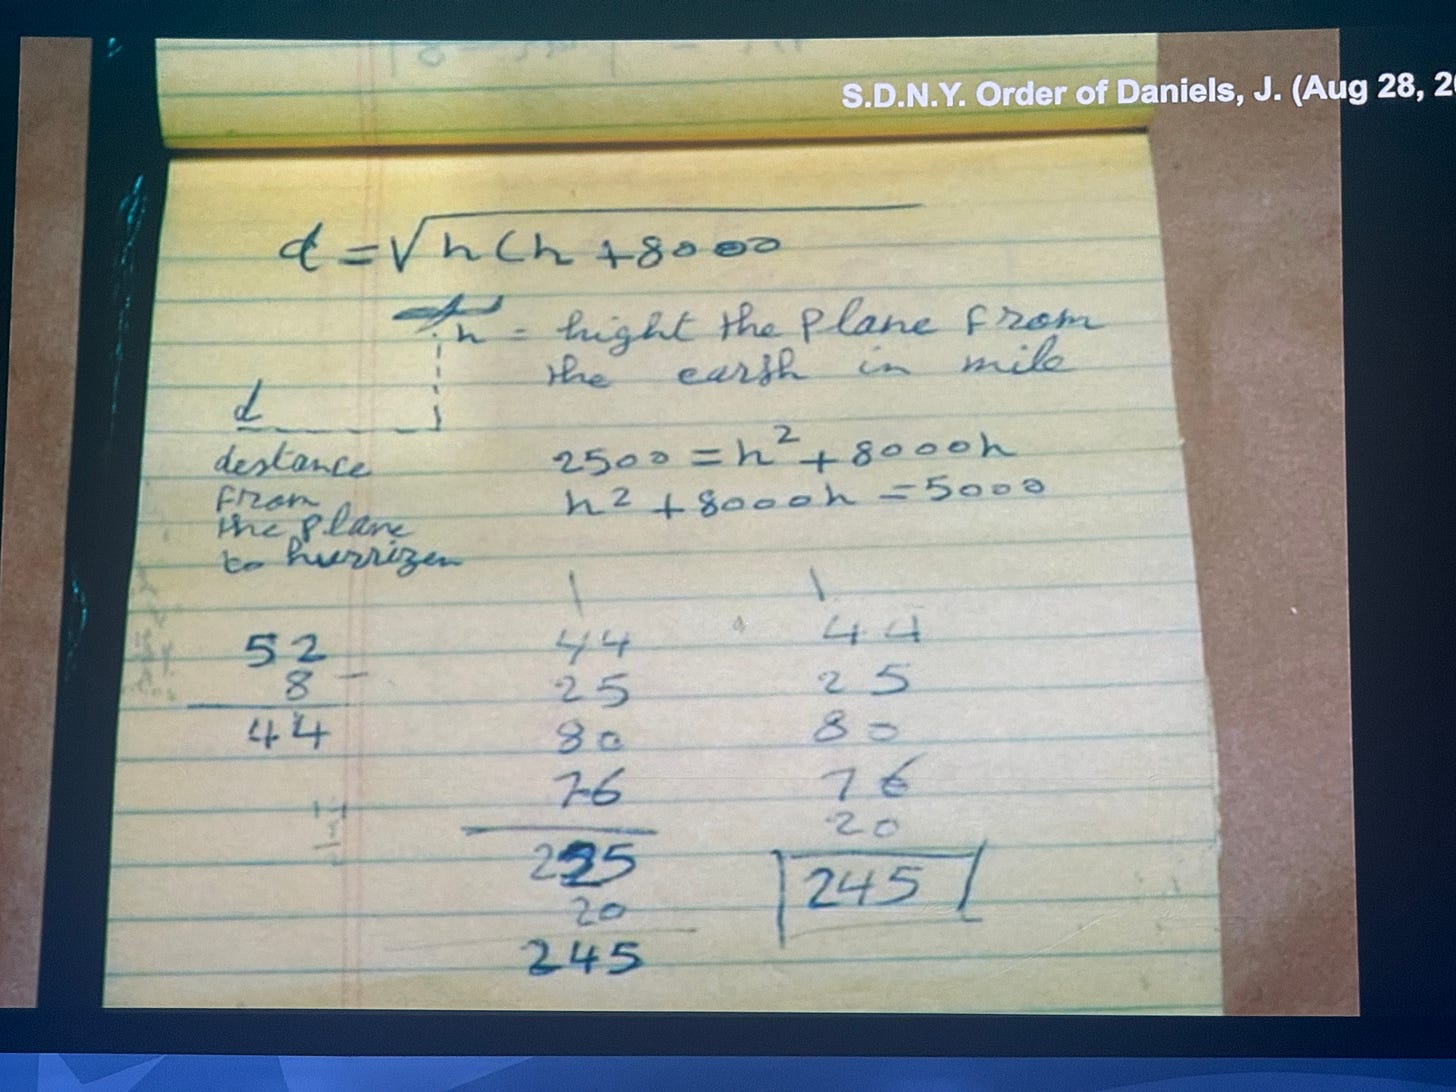 S.D.N.Y. Order of Daniels, J. (Aug 28, 2
d = √h(h +8000
h = hight the plane from
the earth in mile
d
destance
from
the plane
to hurrizen
2500 = h² + 8000h
h² + 8000h = 5000
52
8 –
44
44
25
80
76
225
20
245
44
25
80
76
20
245